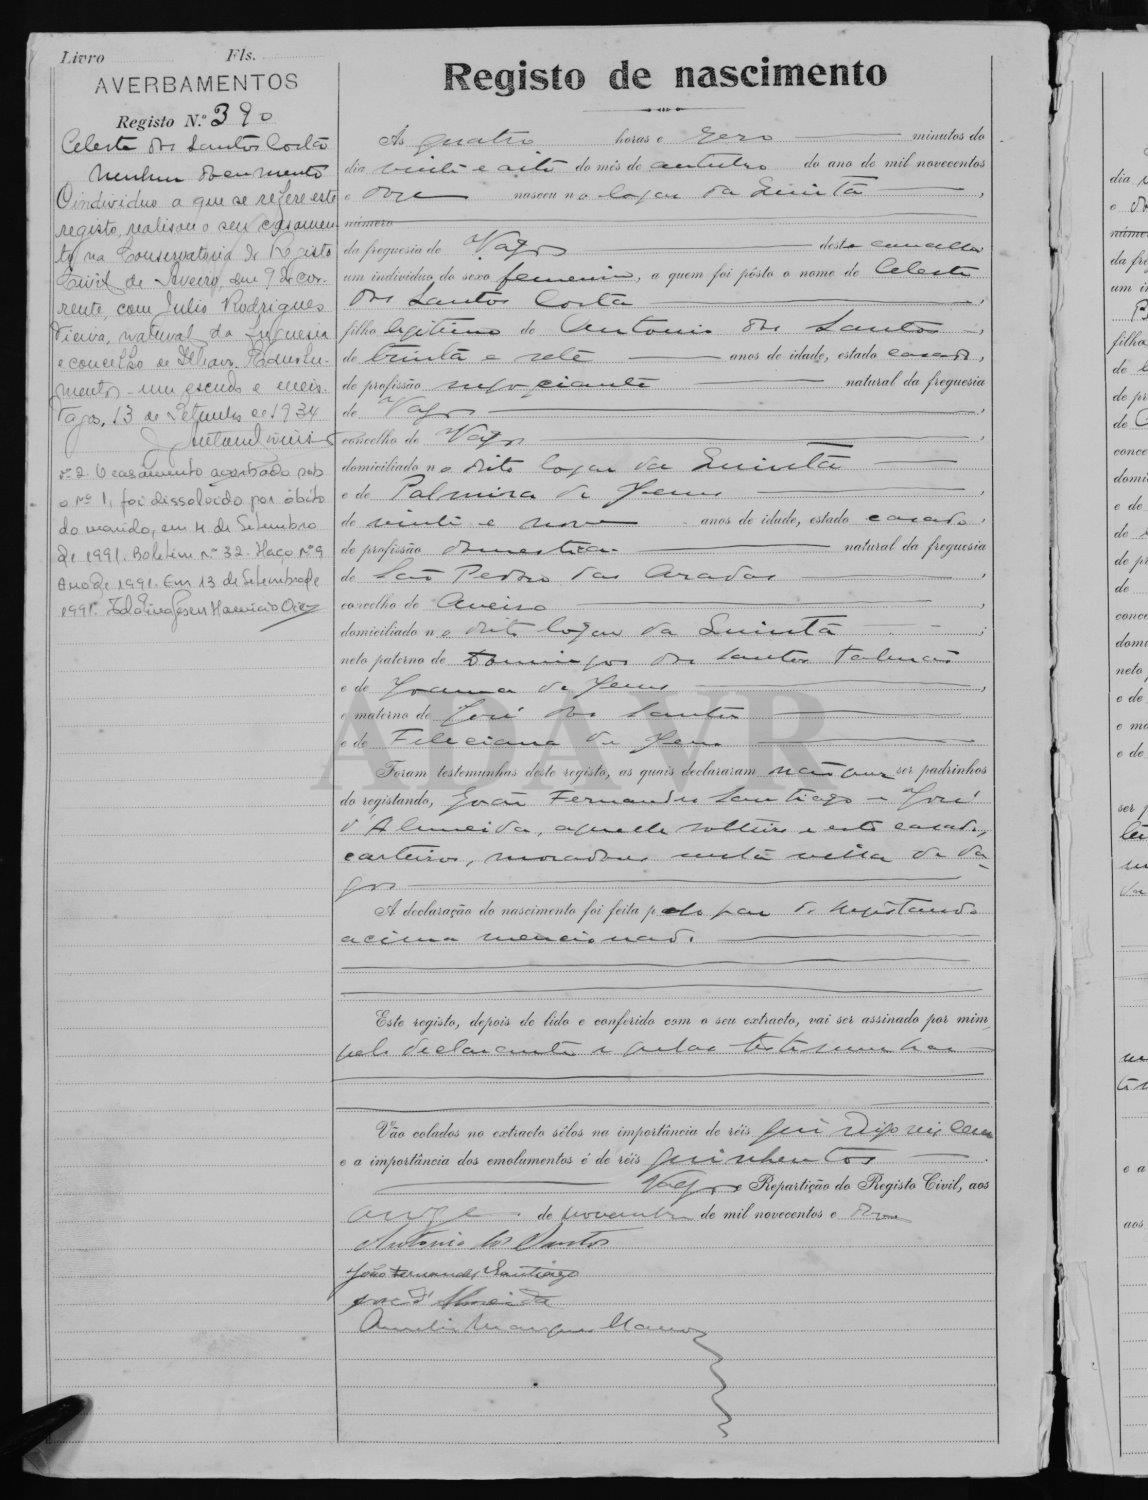 Livro Fls.
AVERBAMENTOS
Registo N.º 390
Celeste dos Santos Costa
Nenhum documento
O individuo a que se refere este
registo, realisou o seu casamen-
to na Conservatoria do Registo
Civil de Aveiro, em 9 do cor-
rente, com Julio Rodrigues
Vieira, natural da freguesia
e concelho de Ilhavo. Emolu-
mentos - um escudo e meio.
Vagos, 13 de Setembro de 1934
nº 2. O casamento averbado sob
o nº 1, foi dissolvido por óbito
do marido, em 4 de Setembro
de 1991. Boletim nº 32. Maço nº 9
Ano de 1991. Em 13 de Setembro de
1991.
Registo de nascimento
Ás quatro horas e zero minutos do
dia vinte e oito do mês de outubro do ano de mil novecentos
e doze nasceu no logar da Quintã,
número
da freguesia de Vagos deste concelho
um indivíduo do sexo femenino, a quem foi pôsto o nome de Celeste
dos Santos Costa,
filho legitimo de Antonio dos Santos,
de trinta e sete anos de idade, estado casado,
de profissão negociante natural da freguesia
de Vagos,
concelho de Vagos
domiciliado no dito logar da Quintã
e de Palmira de Jesus,
de vinte e nove anos de idade, estado casada,
de profissão domestica natural da freguesia
de São Pedro das Aradas,
concelho de Aveiro,
domiciliado no dito logar da Quintã;
neto paterno de Domingos dos Santos
e de Joanna de Jesus,
e materno de José dos Santos
e de Feleciana de Jesus
Foram testemunhas deste registo, as quais declararam não ser padrinhos
do registando, João Fernandes Santiago e José
d'Almeida, aquelle solteiro e este casado,
carteiros, moradores nesta villa de Va-
gos
A declaração do nascimento foi feita pelo pae do registando
acima mencionado.
Este registo, depois de lido e conferido com o seu extracto, vai ser assinado por mim,
pelo declarante e pelas testemunhas
Vão colados no extracto sêlos na importância de réis
e a importância dos emolumentos é de réis quinhentos.
Vagos e Repartição do Registo Civil, aos
onze de novembro de mil novecentos e doze
Antonio dos Santos
João Fernandes Santiago
José d'Almeida
ADAVR